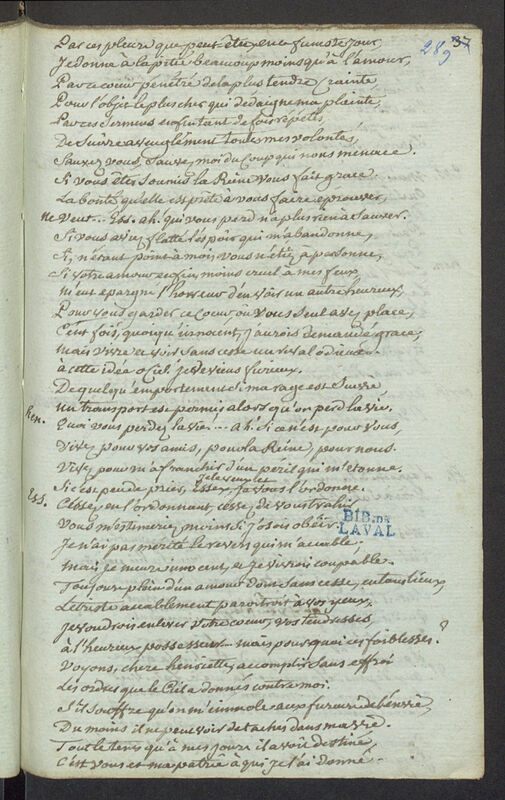 37
289
Par ces pleurs que peut-être en ce funeste jour,
Je donne à la pitié beaucoup moins qu'à l'amour,
Par ce coeur penêtré de la plus tendre crainte,
Pour l'objet le plus cher qui dedaigne ma plainte,
Par ces sermens enfin tant de fois repetés,
De suivre aveuglément toutes mes volontés,
Sauvez vous, sauvez moi du coup qui nous menace.
Si vous êtes soumis la Reine vous fait grace
La bonté qu'elle est prête à vous faire éprouver,
ne veut... Ess. ah. qui vous perd n'a plus rien à sauver.
Si vous aviez flatté l'espoir qui m'abandonne,
Si, n'etant point à moi, vous n'étiez à personne,
Si votre amour enfin moins cruel à mes feux
m'eut epargné l'horreur d'en voir un autre heureux,
Pour vous garder ce coeur où vous seul avez place,
Cent fois, quoiqu'innocent, j'aurois demandé grace,
mais vivre et voir sans cesse un rival odieux..
à cette idée o Ciel! je deviens furieux.
De quelqu'emportement si ma rage est suivie
un transport est permis alors qu'on perd la vie.
hen.
Quoi vous perdez la vie... ah. si ce n'est pour vous,
Vivez pour vos amis, pour la Reine, pour nous.
Vivez pour m'afranchir d'un péril qui m'étonne.
Si c'est peu de prier, je le veux et je vous l'ordonne.
Ess.
Cessez, en l'ordonnant, cessez de vous trahir
Vous m'estimeriez moins si j'osois obéir.
BIB. DE LAVAL
Je n'ai pas mérité le revers qui m'accable,
mais je meurs innocent, et je vivrois coupable.
Toujours plein d'un amour dont sans cesse
Le triste accablement paroitroit à vos yeux,
Je voudrois enlever votre coeur, vos tendresses
à l'heureux possesseur... mais pourquoi ces foiblesses?
Voyons, chere henriette, accomplir sans effroi
Les ordres que le Ciel a donnés contre moi.
S'il souffre qu'on m'immole aux fureurs de l'envie,
Du moins il ne peut voir de taches dans ma vie.
Tout le tems qu'à mes jours il avoit destiné,
C'est vous et ma patrie à qui je l'ai donné.